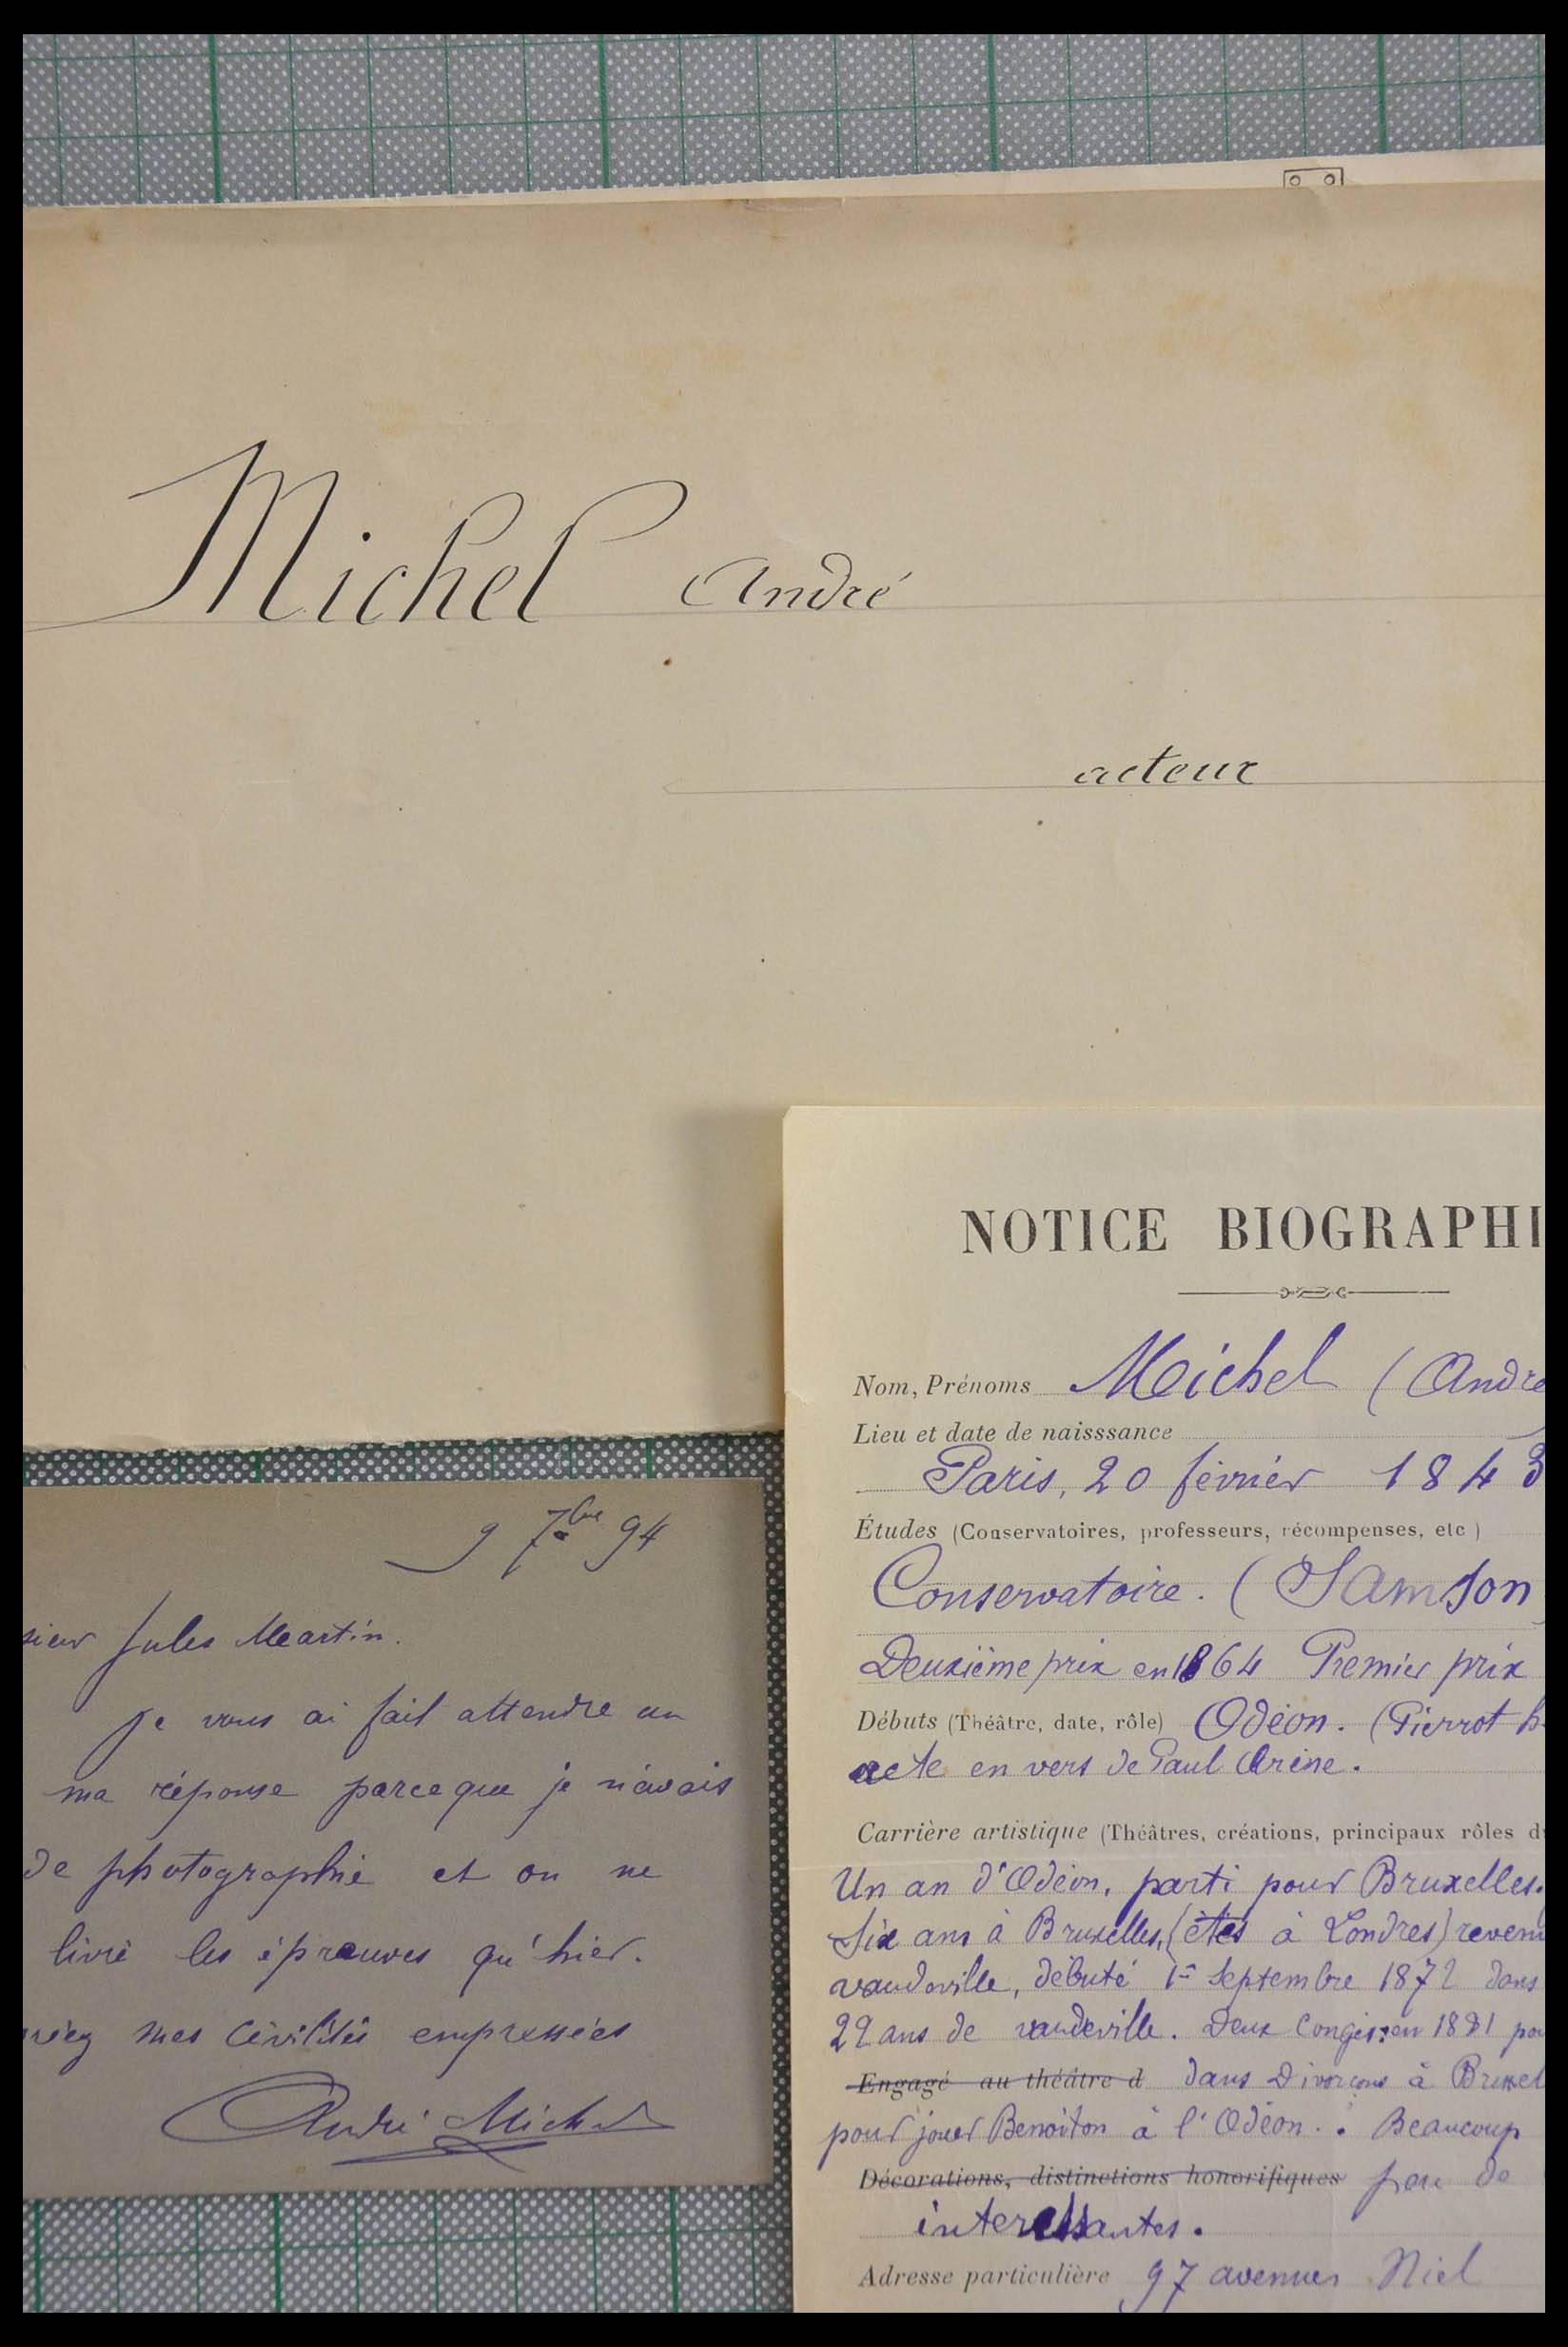 Michel André
acteur
9 7bre 94
sieur Jules Martin.
Je vous ai fait attendre un
ma réponse parceque je n'avais
de photographie et on ne
livré les épreuves qu'hier.
mes civilités empressées
André Michel
NOTICE BIOGRAPHI
Nom, Prénoms Michel (André
Lieu et date de naisssance
Paris, 20 février 1843
Études (Conservatoires, professeurs, récompenses, etc)
Conservatoire. (Samson
Deuxième prix en 1864 Premier prix
Débuts (Théâtre, date, rôle) Odéon. (Pierrot h
acte en vers de Paul Arène.
Carrière artistique (Théâtres, créations, principaux rôles d
Un an d'Odéon, parti pour Bruxelles.
Six ans à Bruxelles, (étés à Londres) revenu
vaudeville, débuté 1er Septembre 1872 dans
22 ans de vaudeville. Deux congés: en 1881 pou
Engagé au théâtre d dans Divorçons à Bruxel
pour jouer Benoiton à l'Odéon. Beaucoup
Décorations, distinctions honorifiques peu de
interessantes.
Adresse particulière 97 avenue Niel